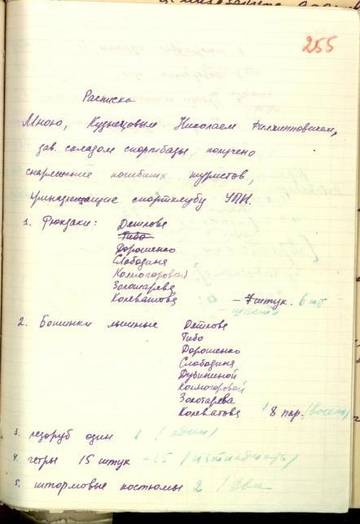 255
Расписка
Мною, Кузнецовым Николаем Филиппповичем,
зав. складом спортбазы, получено
снаряжение погибших туристов,
принадлежащие спортклубу УПИ.
1. Рюкзаки: Дятлова
Тибо
Дорошенко
Слободина
Колмогоровой
Золотарева
Колеватова – 7 штук. 6 шт
2. Ботинки лыжные Дятлова
Тибо
Дорошенко
Слободина
Дубининой
Колмогоровой
Золотарева
Колеватова 8 пар. (восемь)
3. ледоруб один 1 (один)
4. гетры 15 штук – 15 (пятнадцать)
5. штормовые костюмы 2 (два)